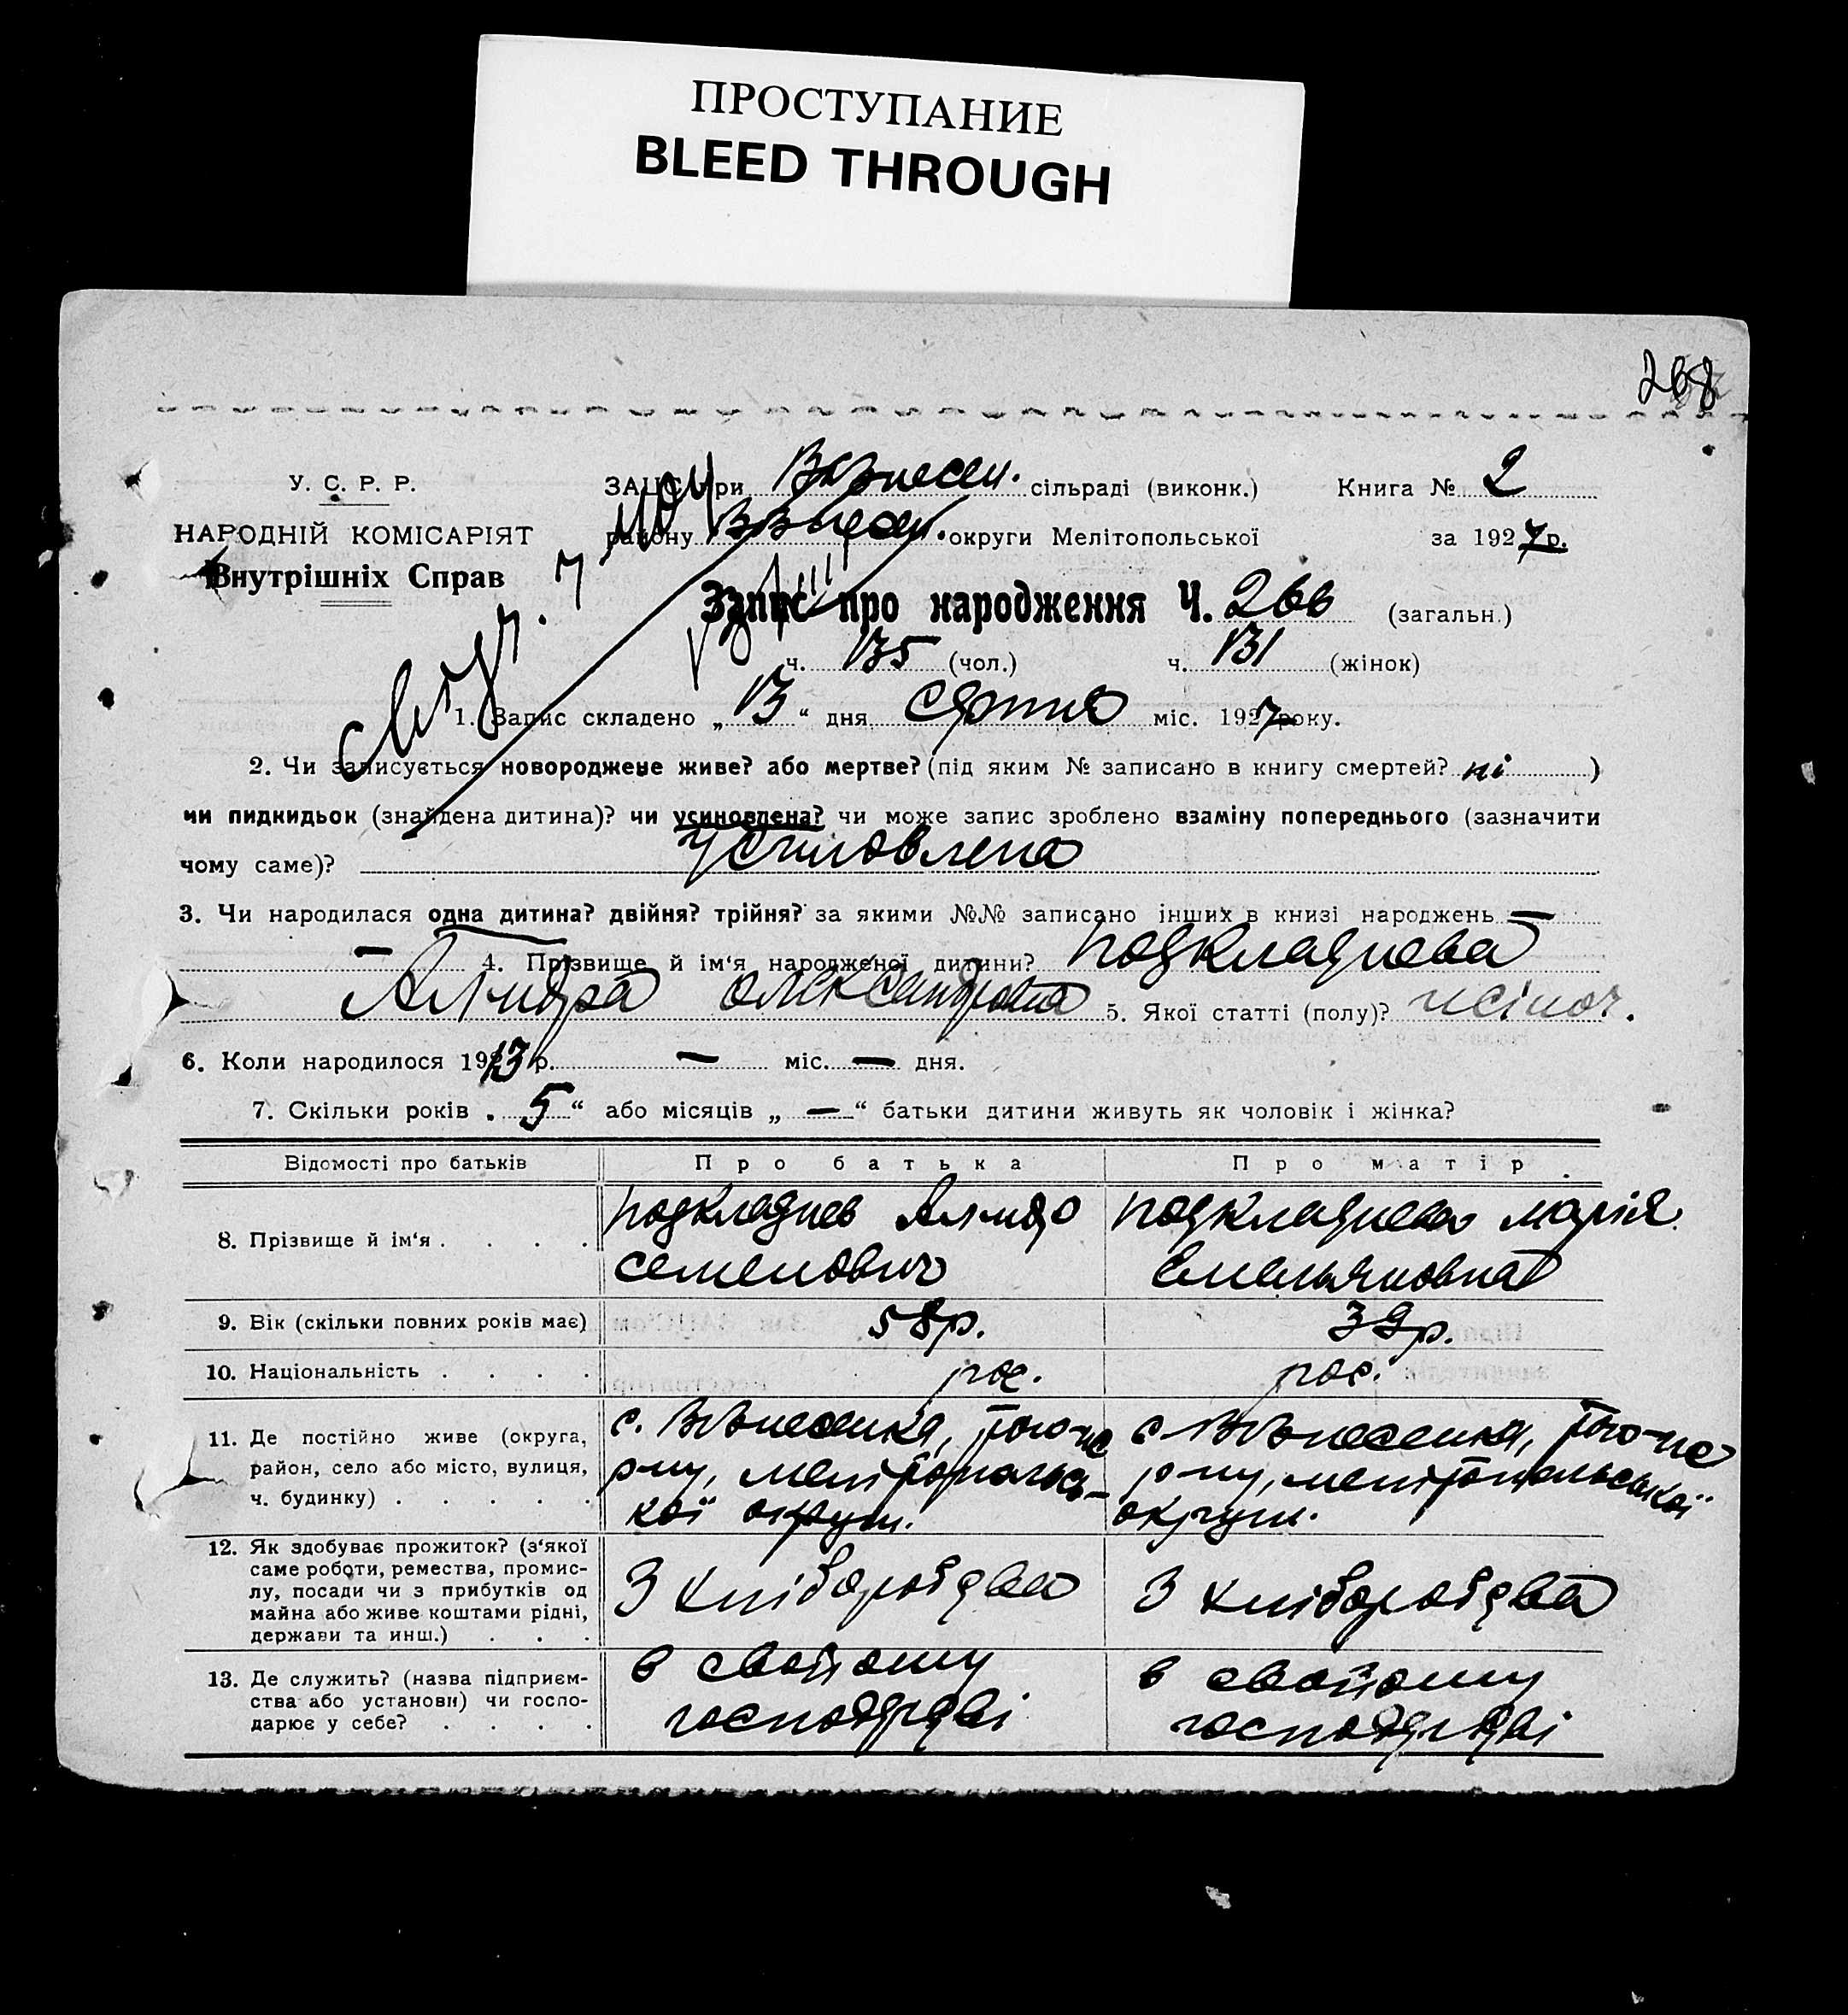 ПРОСТУПАНИЕ
BLEED THROUGH
268
У. С. Р. Р.
ЗАЦС при Вознесен. сільраді (виконк.) Книга № 2
НАРОДНІЙ КОМІСАРІЯТ
району округи Мелітопольської за 1927 р.
Внутрішніх Справ
Запис про народження Ч. 266 (загальн.)
ч. 135 (чол.) ч. 131 (жінок)
1. Запис складено „ 13 “ дня серпня міс. 1927 року.
2. Чи записується новороджене живе? або мертве? (під яким № записано в книгу смертей? ні )
чи пидкидьок (знайдена дитина)? чи усиновлена? чи може запис зроблено взаміну попереднього (зазначити
чому саме)? усиновлена
3. Чи народилася одна дитина? двійня? трійня? за якими №№ записано інших в книзі народжень —
— 4. Прізвище й ім‘я народженої дитини? Подкладнева
Олександровна 5. Якої статті (полу)? жіноч.
6. Коли народилося 1913 р. — міс. — дня.
7. Скільки років „ 5 “ або місяців „ — “ батьки дитини живуть як чоловік і жінка?
Відомості про батьків Про батька Про матір
8. Прізвище й ім‘я . . . .
Подкладнев
Семенович
Подкладнева Марія
Емельяновна
9. Вік (скільки повних років має) 58 р. 39 р.
10. Національність . . . . рос. рос.
11. Де постійно живе (округа,
район, село або місто, вулиця,
ч. будинку) . . . . .
с. Вознесенка, того-же
р-ну, Мелітопольсь-
кої округи.
с. Вознесенка, того-же
р-ну, Мелітопольської
округи.
12. Як здобуває прожиток? (з‘якої
саме роботи, ремества, промис-
лу, посади чи з прибутків од
майна або живе коштами рідні,
держави та инш.) . . .
З хліборобства
З хліборобства
13. Де служить? (назва підприєм-
ства або установи) чи госпо-
дарює у себе? . . . .
в свойому
господарстві
в свойому
господарстві